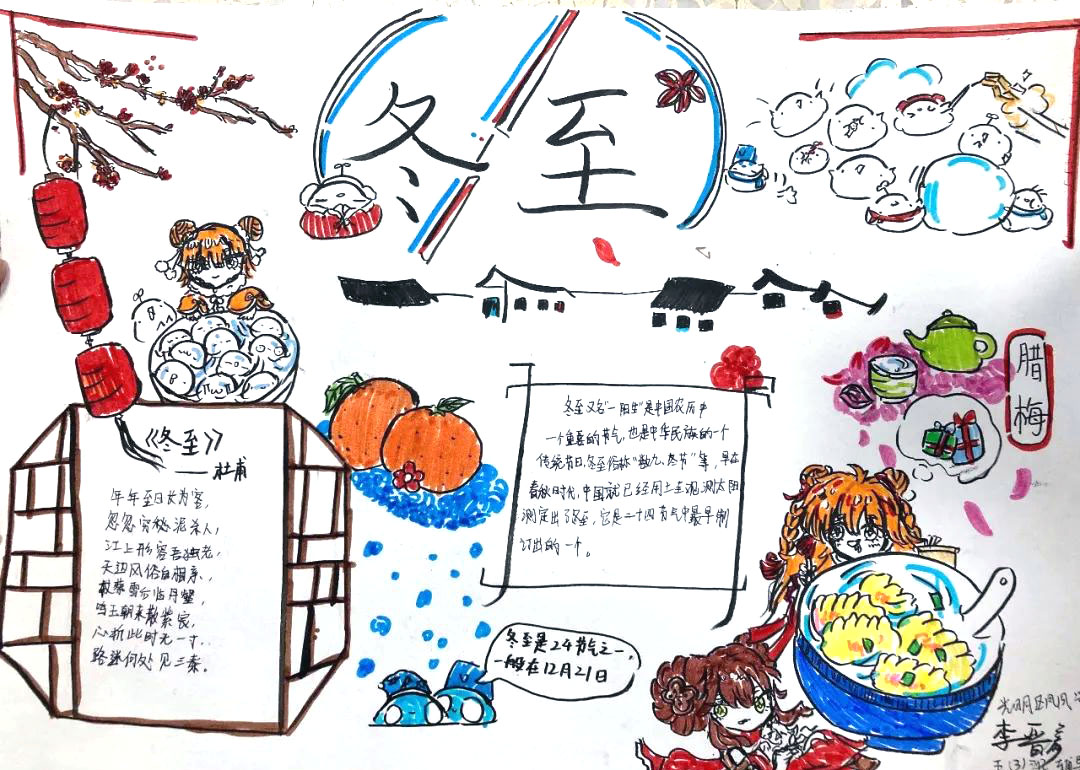 冬至
《冬至》
——杜甫
年年至日长为客，
忽忽穷愁泥杀人，
江上形容吾独老，
天边风俗自相亲，
杖藜雪后临丹壑，
鸣玉朝来散紫宸，
心折此时无一寸，
路迷何处见三秦。
冬至又名“一阳生”是中国农历中
一个重要的节气，也是中华民族的一个
传统节日，冬至俗称“数九、冬节”等，早在
春秋时代，中国就已经用土圭观测太阳
测定出了冬至，它是二十四节气中最早制
订出的一个。
冬至是24节气之一，
一般在12月21日
腊梅
李晋
五(3)班